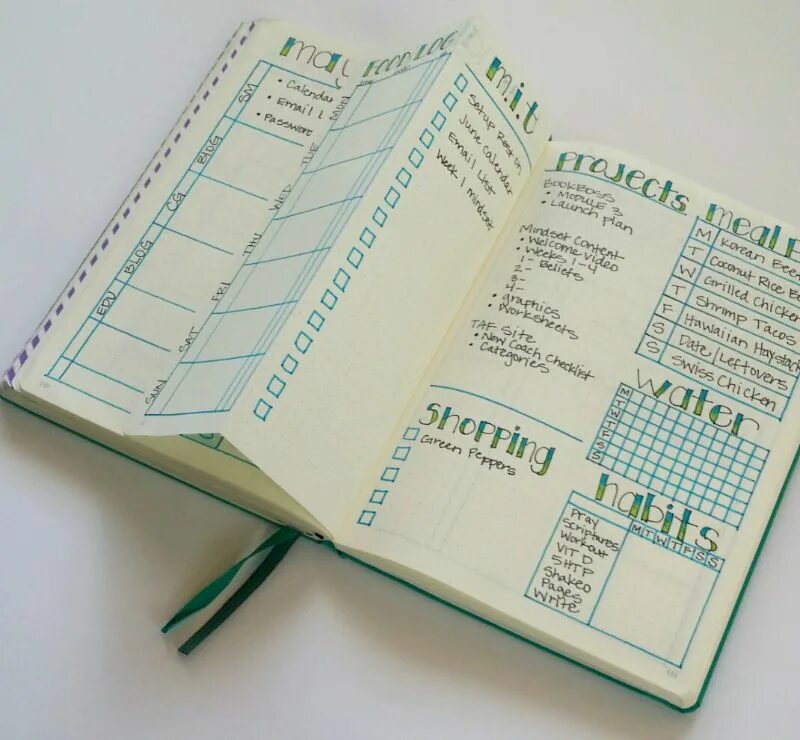 may
SM
• Calendar
• Email
• Password
BLOG
CG
BLOG
EDU
FOOD LOG
MON
TUE
WED
THU
FRI
SAT
SUN
m.i.t
Setup Rest on
June Calendar
Email List
Week 1 mindset
projects
BOOKBOSS
• Module 3
• Launch plan
Mindset Content
• Welcome video
• Weeks 1-4
1- Beliefs
2-
3-
4-
• graphics
• Worksheets
TAF Site
• New Coach Checklist
• Categories
shopping
Green Peppers
meal
M Korean Beef
T Coconut Rice
W Grilled Chicken
T Shrimp Tacos
F Hawaiian Haystack
S Date/Leftovers
S Swiss Chicken
water
M
T
W
T
F
S
S
habits
M T W T F S S
Pray
Scriptures
Workout
VIT D
5HTP
Shakeo
Pages
Write